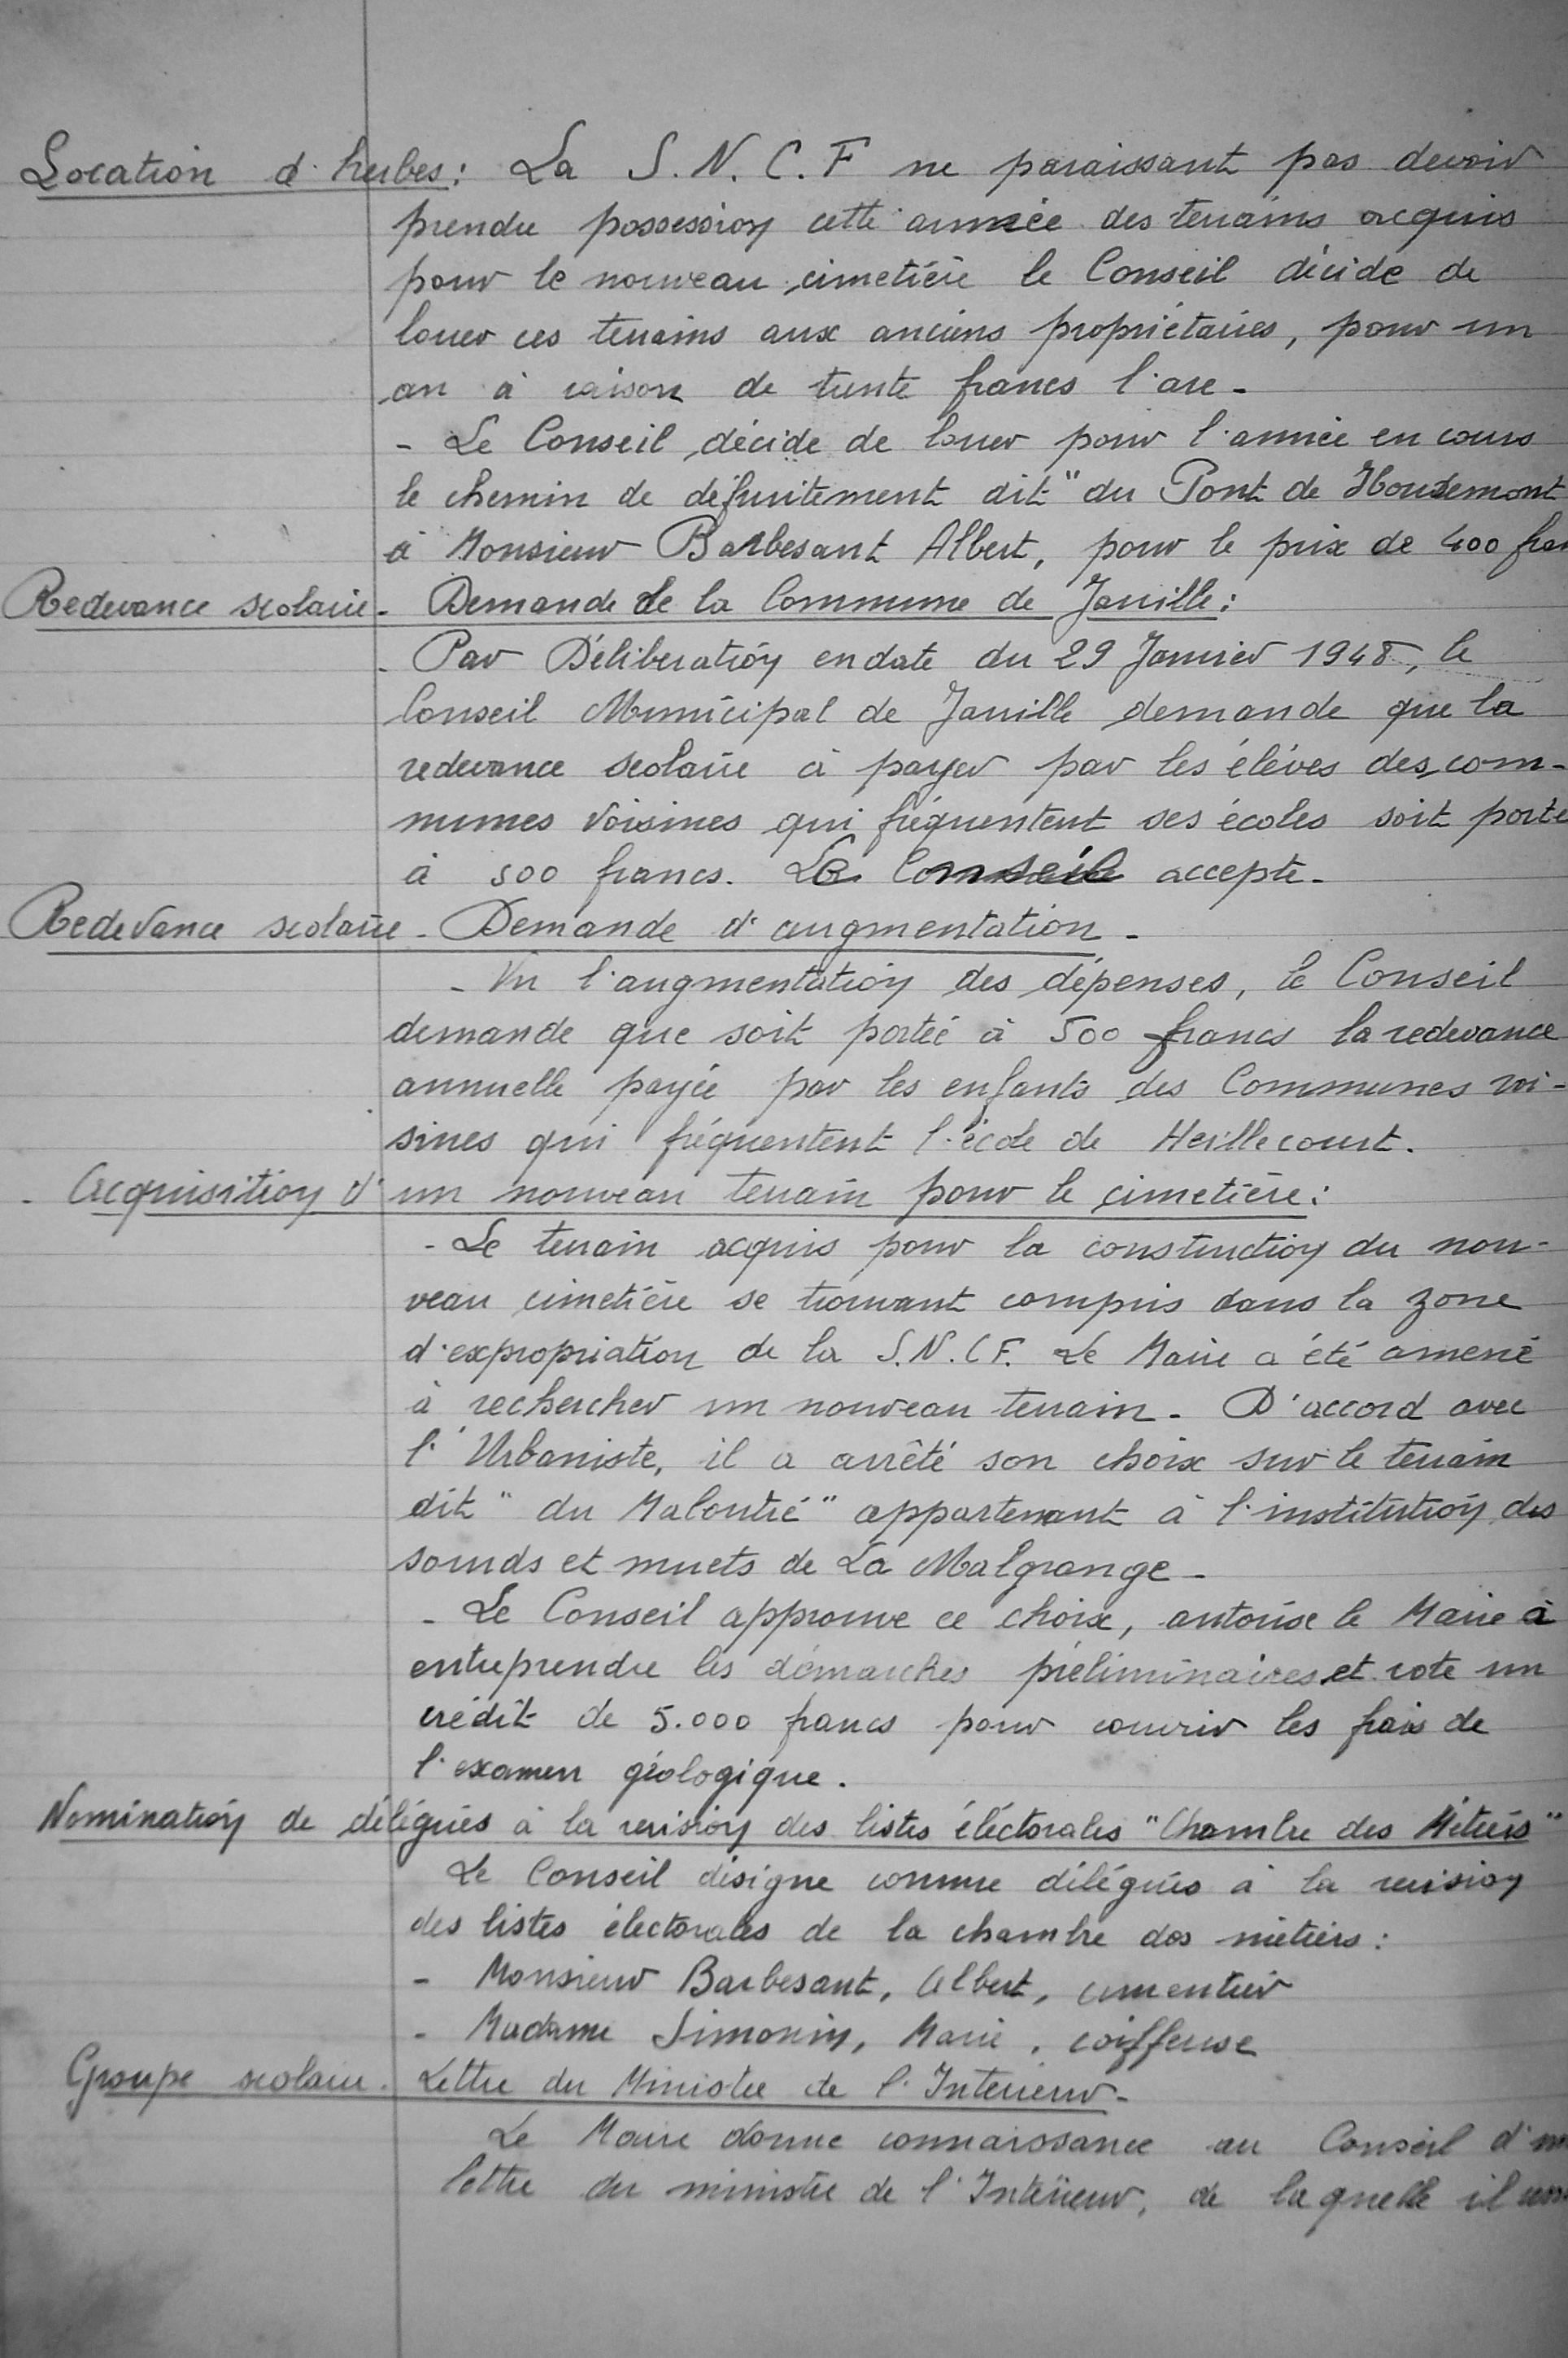 Location d'herbes: La S.N.C.F ne paraissant pas devoir
prendre possession cette année des terrains acquis
pour le nouveau cimetière le Conseil décide de
louer ces terrains aux anciens propriétaires, pour un
an à raison de trente francs l'are -
- Le Conseil décide de louer pour l'année en cours
le chemin de défruitement dit " du Pont de Houdemont
à Monsieur Barbesant Albert, pour le prix de 400 fran
Redevance scolaire - Demande de la Commune de Jarville:
- Par Délibération en date du 29 Janvier 1948, le
Conseil Municipal de Jarville demande que la
redevance scolaire à payer par les élèves des com-
munes voisines qui fréquentent ses écoles soit porte
à 500 francs. Le Conseil accepte -
Redevance scolaire - Demande d'augmentation -
- Vu l'augmentation des dépenses, le Conseil
demande que soit portée à 500 francs la redevance
annuelle payée par les enfants des Communes voi-
sines qui fréquentent l'école de Heillecourt.
- Acquisition d'un nouveau terrain pour le cimetière:
- Le terrain acquis pour la construction du nou-
veau cimetière se trouvant compris dans la zone
d'expropriation de la S.N.C.F. Le Maire a été amené
à rechercher un nouveau terrain - D'accord avec
l'Urbaniste, il a arrêté son choix sur le terrain
dit " du Maloutié " appartenant à l'institution des
sourds et muets de La Malgrange -
- Le Conseil approuve ce choix, autorise le Maire à
entreprendre les démarches préliminaires et vote un
crédit de 5.000 francs pour couvrir les frais de
l'examen géologique.
Nomination de délégués à la revision des listes éléctorales "Chambre des Métiers"
Le Conseil désigne comme délégués à la revision
des listes électorales de la chambre des métiers:
- Monsieur Barbesant, Albert, cimentier
- Madame Simonin, Marie, coiffeuse
Groupe scolaire. Lettre du Ministre de l'Intérieur -
Le Maire donne connaissance au Conseil d'un
lettre du ministre de l'Intérieur, de laquelle il